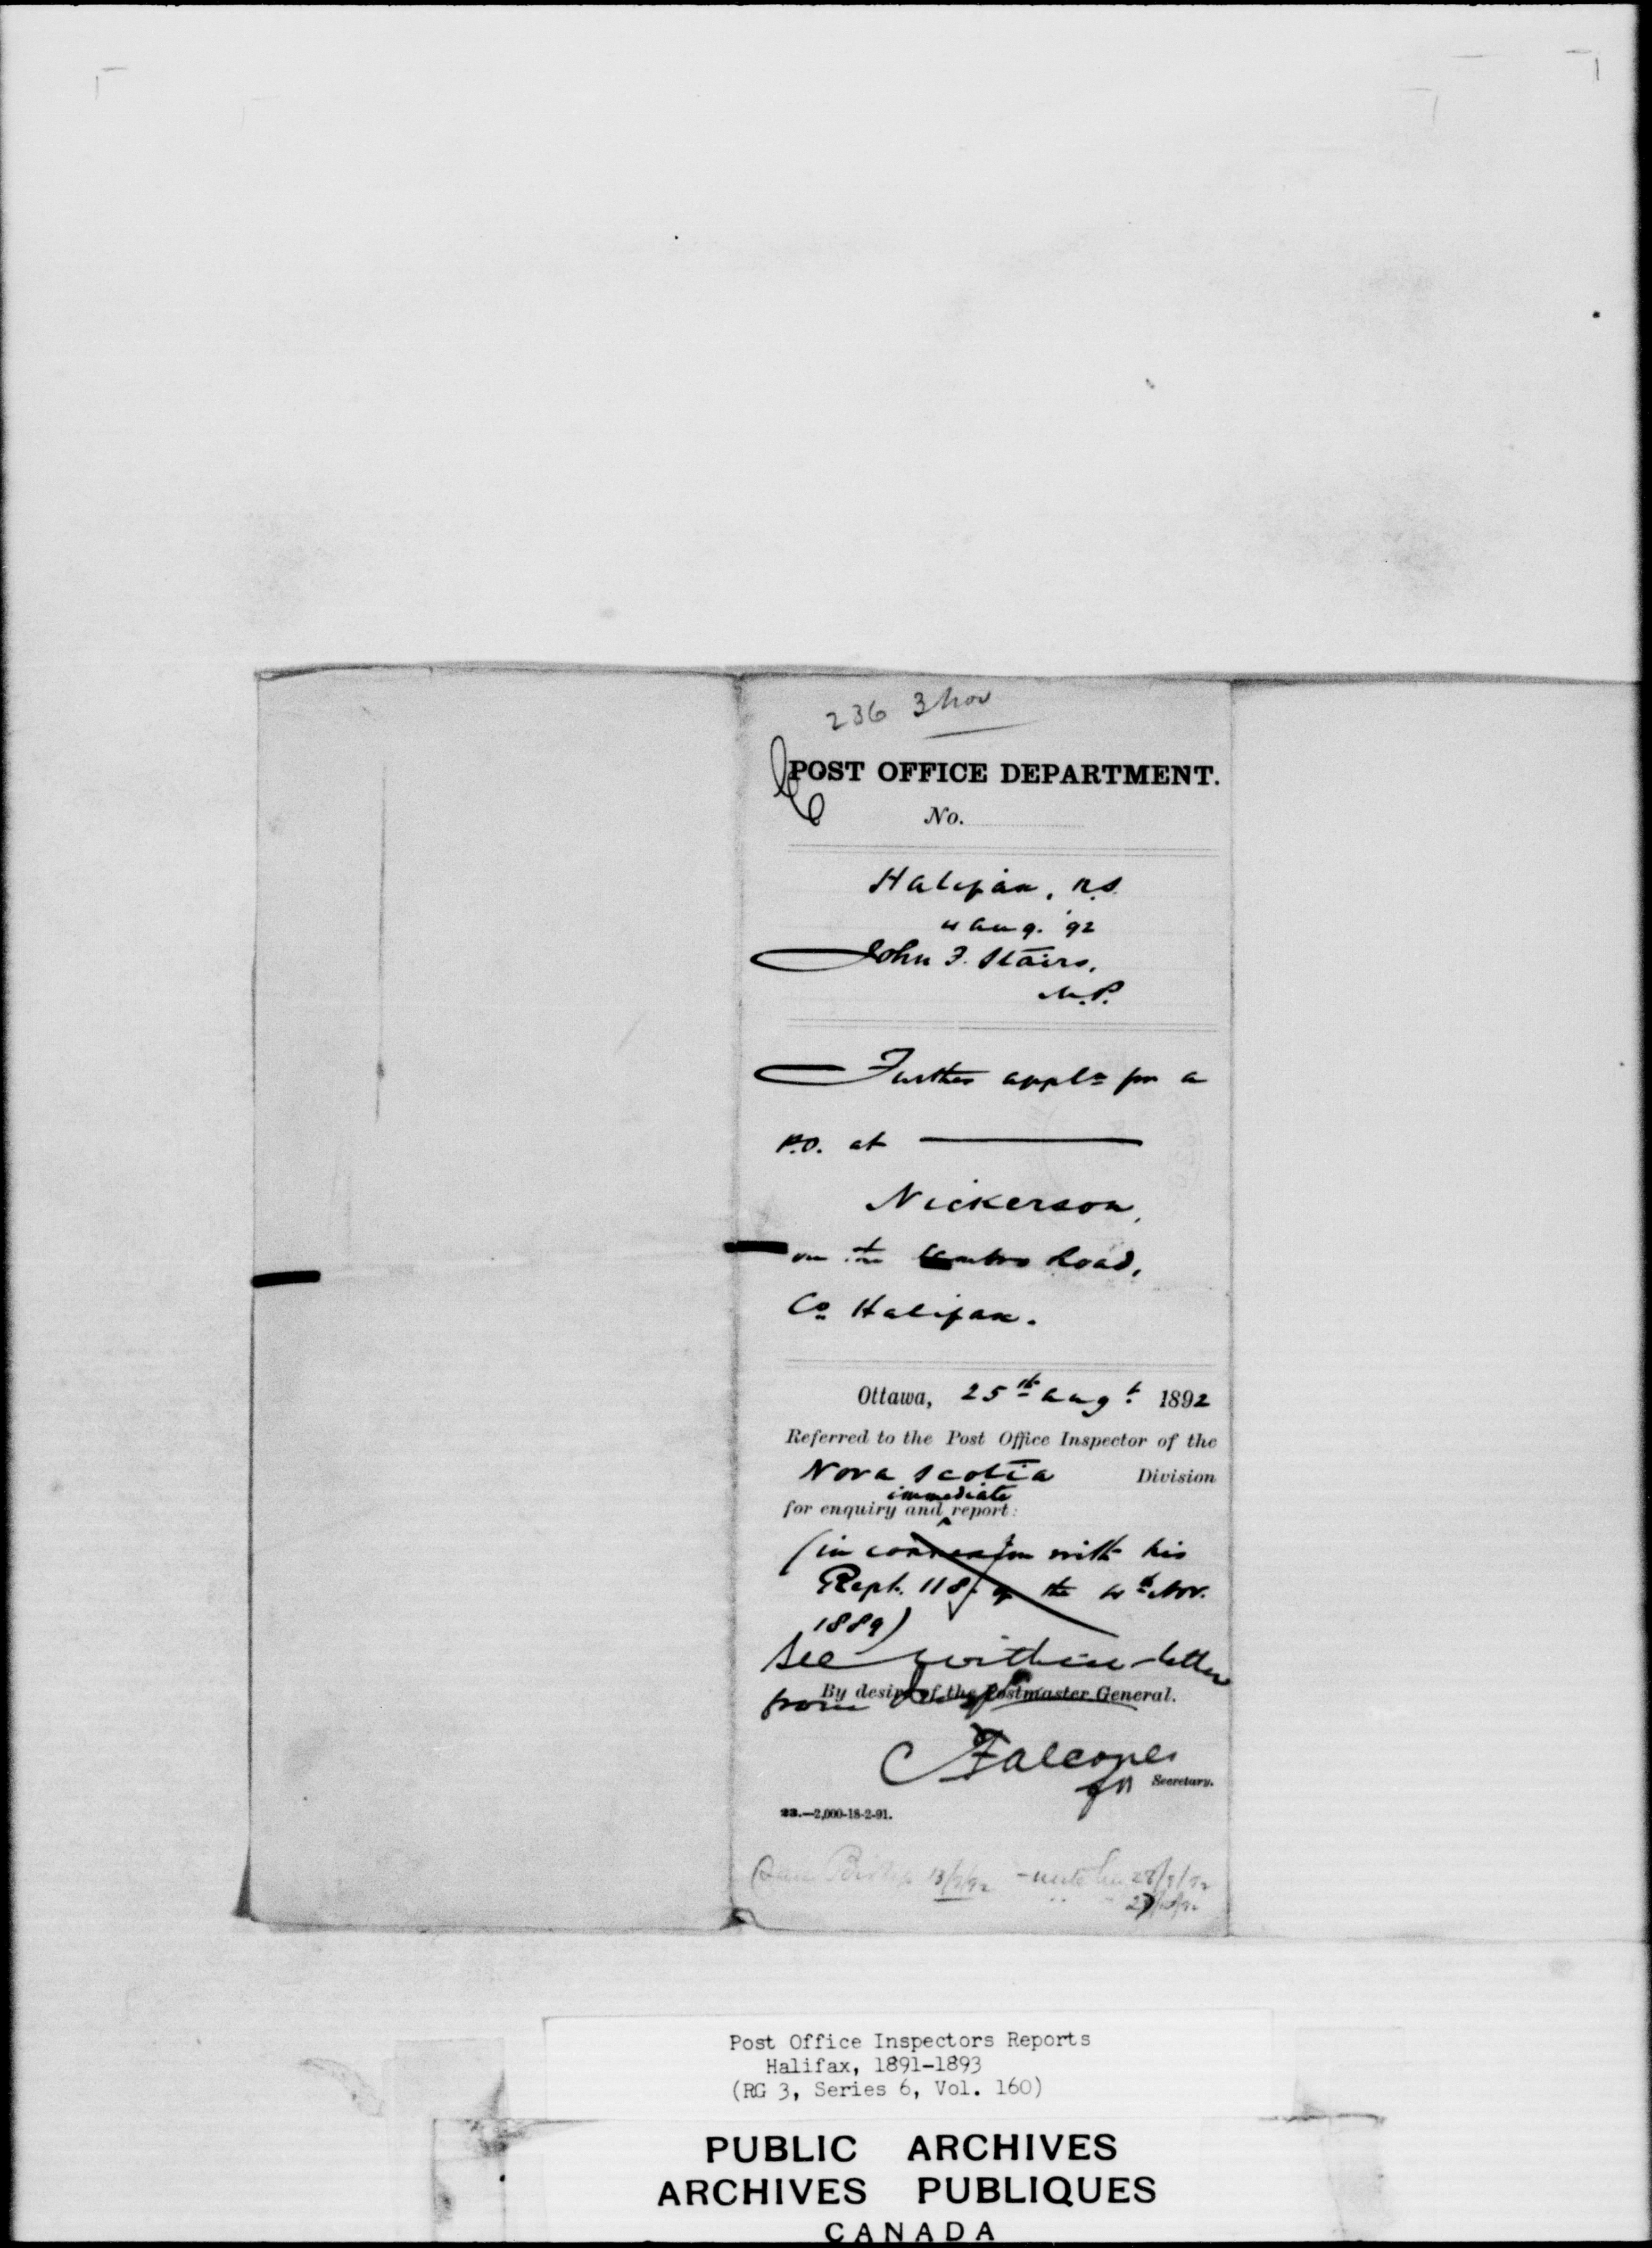 236 3 Nov
POST OFFICE DEPARTMENT.
No.
Halifax, N.S.
4 Aug. '92
John F. Stairs,
M.P.
Further appln for a
P.O. at
Nickerson,
on the Road,
Co Halifax.
Ottawa, 25th Augt. 1892
Referred to the Post Office Inspector of the
Nova Scotia Division
immediate
for enquiry and report:
(in connexion with his
Rept. 118 of the 4th Nov.
1889)
See within letter
By desire of the Postmaster General.
from
Secretary.
23.—2,000-18-2-91.
13/9/92 28/9/92
Post Office Inspectors Reports
Halifax, 1891-1893
(RG 3, Series 6, Vol. 160)
PUBLIC ARCHIVES
ARCHIVES PUBLIQUES
CANADA